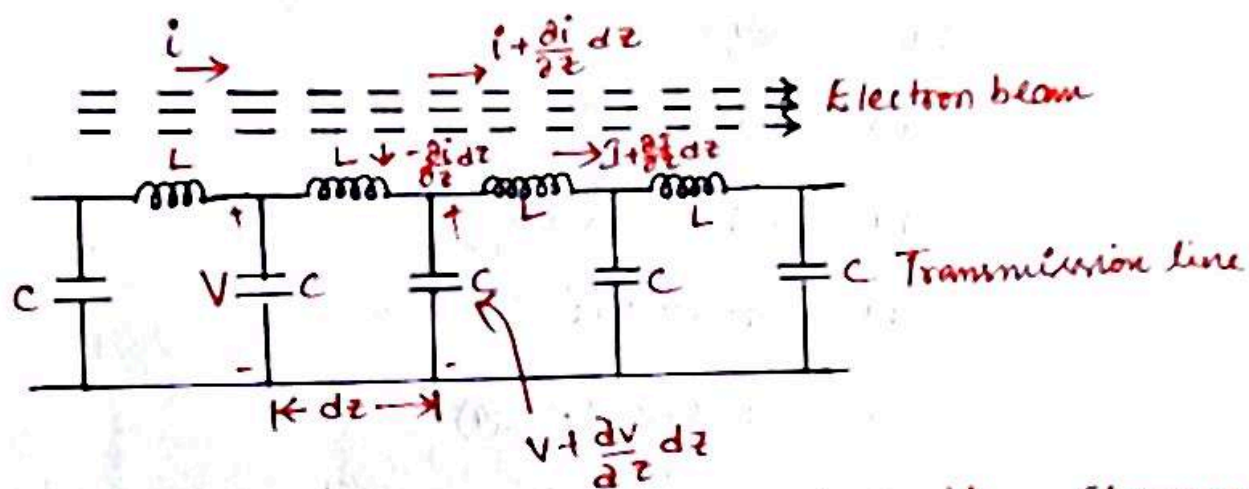 i
i + ∂i/∂z dz
Electron beam
L
L
-∂i/∂z dz
J + ∂J/∂z dz
L
L
+
+
C
V
C
C
C
C
Transmission line
-
-
dz
V + ∂V/∂z dz